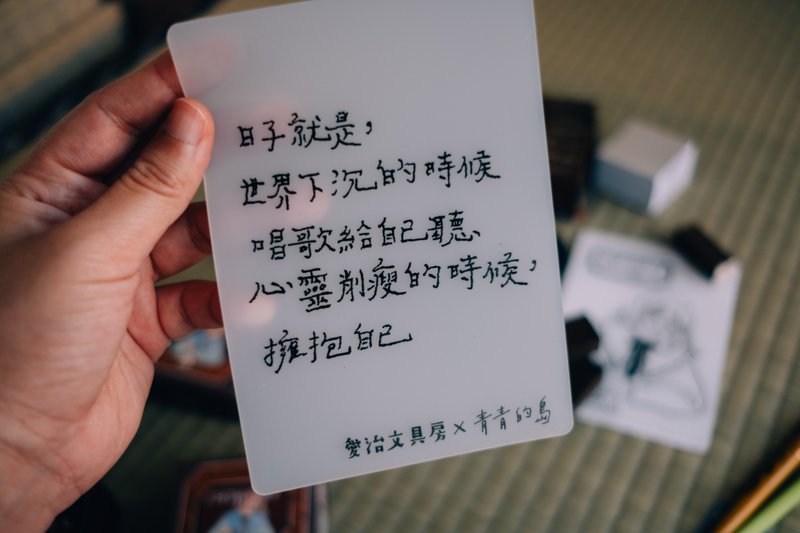 日子就是，
世界下沉的時候
唱歌給自己聽、
心靈削瘦的時候，
擁抱自己
變治文具房×青青的島